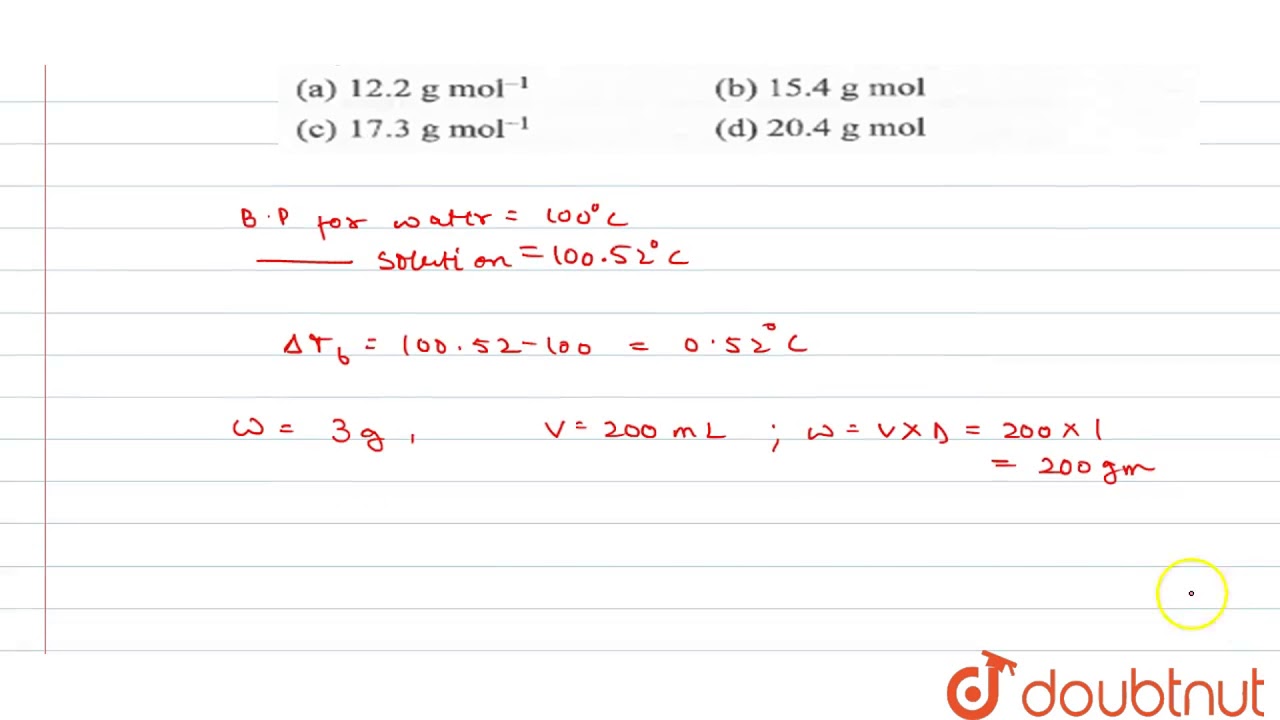 (a) 12.2 g mol⁻¹ (b) 15.4 g mol
(c) 17.3 g mol⁻¹ (d) 20.4 g mol
B.P for water = 100°C
solution = 100.52°C
ΔT_b = 100.52 - 100 = 0.52°C
W = 3g, V = 200 mL ; W = V×D = 200×1
= 200 gm
doubtnut